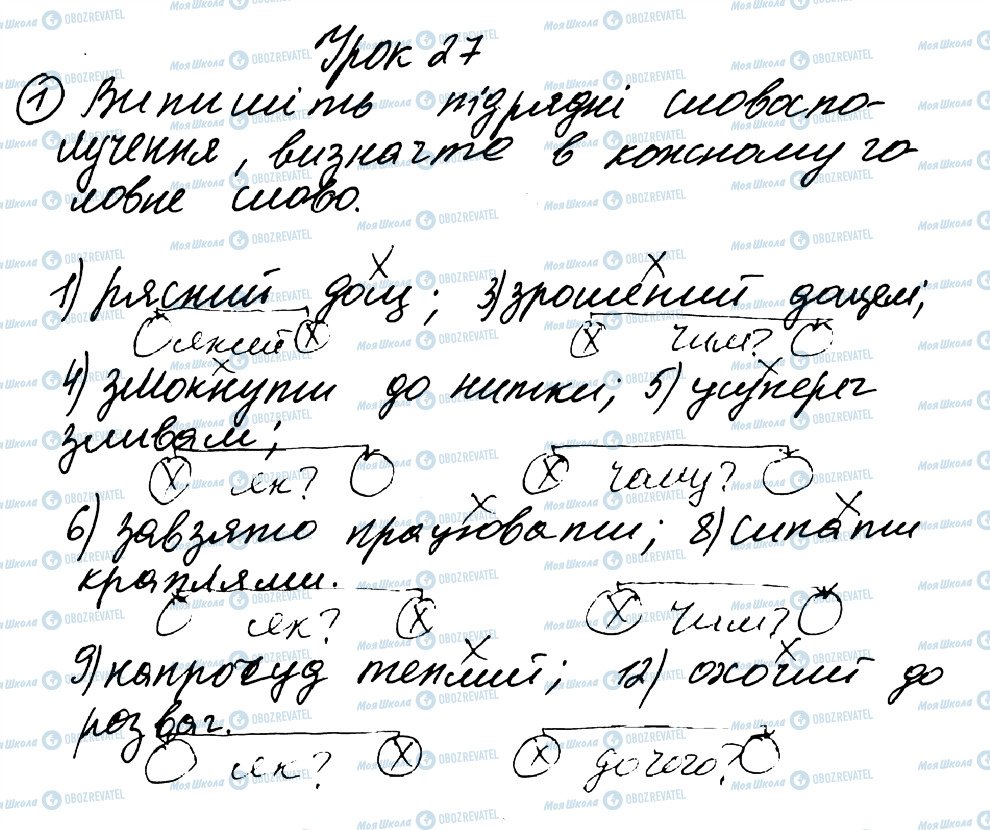 Урок 27
① Випишіть підрядні словоспо-
лучення, визначте в кожному го-
ловне слово.
1) рясний дощ; 3) зрошений дощем;
який чим?
4) змокнути до нитки; 5) усупереч
зливам;
як? чому?
6) завзято працювати; 8) сипати
краплями.
як? чим?
9) напрочуд теплий; 12) охочий до
розваг.
як? до чого?